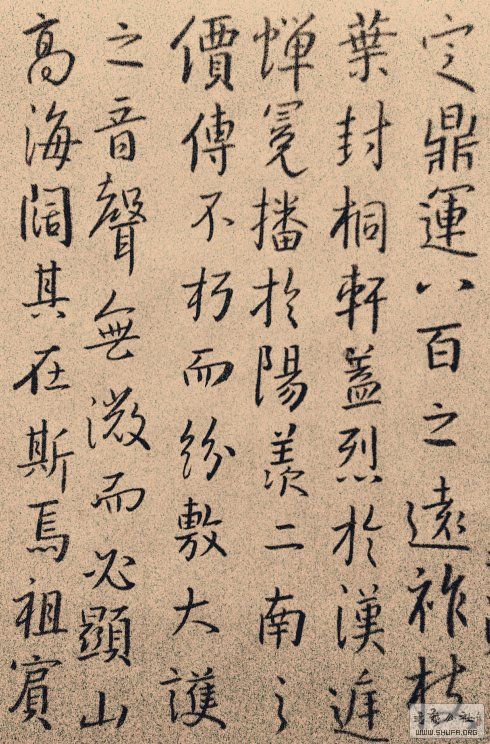 定鼎運八百之遠祚枝
葉封桐軒蓋烈於漢庭
蟬冕播於陽羨二南之
價傳不朽而紛敷大護
之音聲無微而必顯山
高海闊其在斯焉祖賓
WWW.SHUFA.ORG